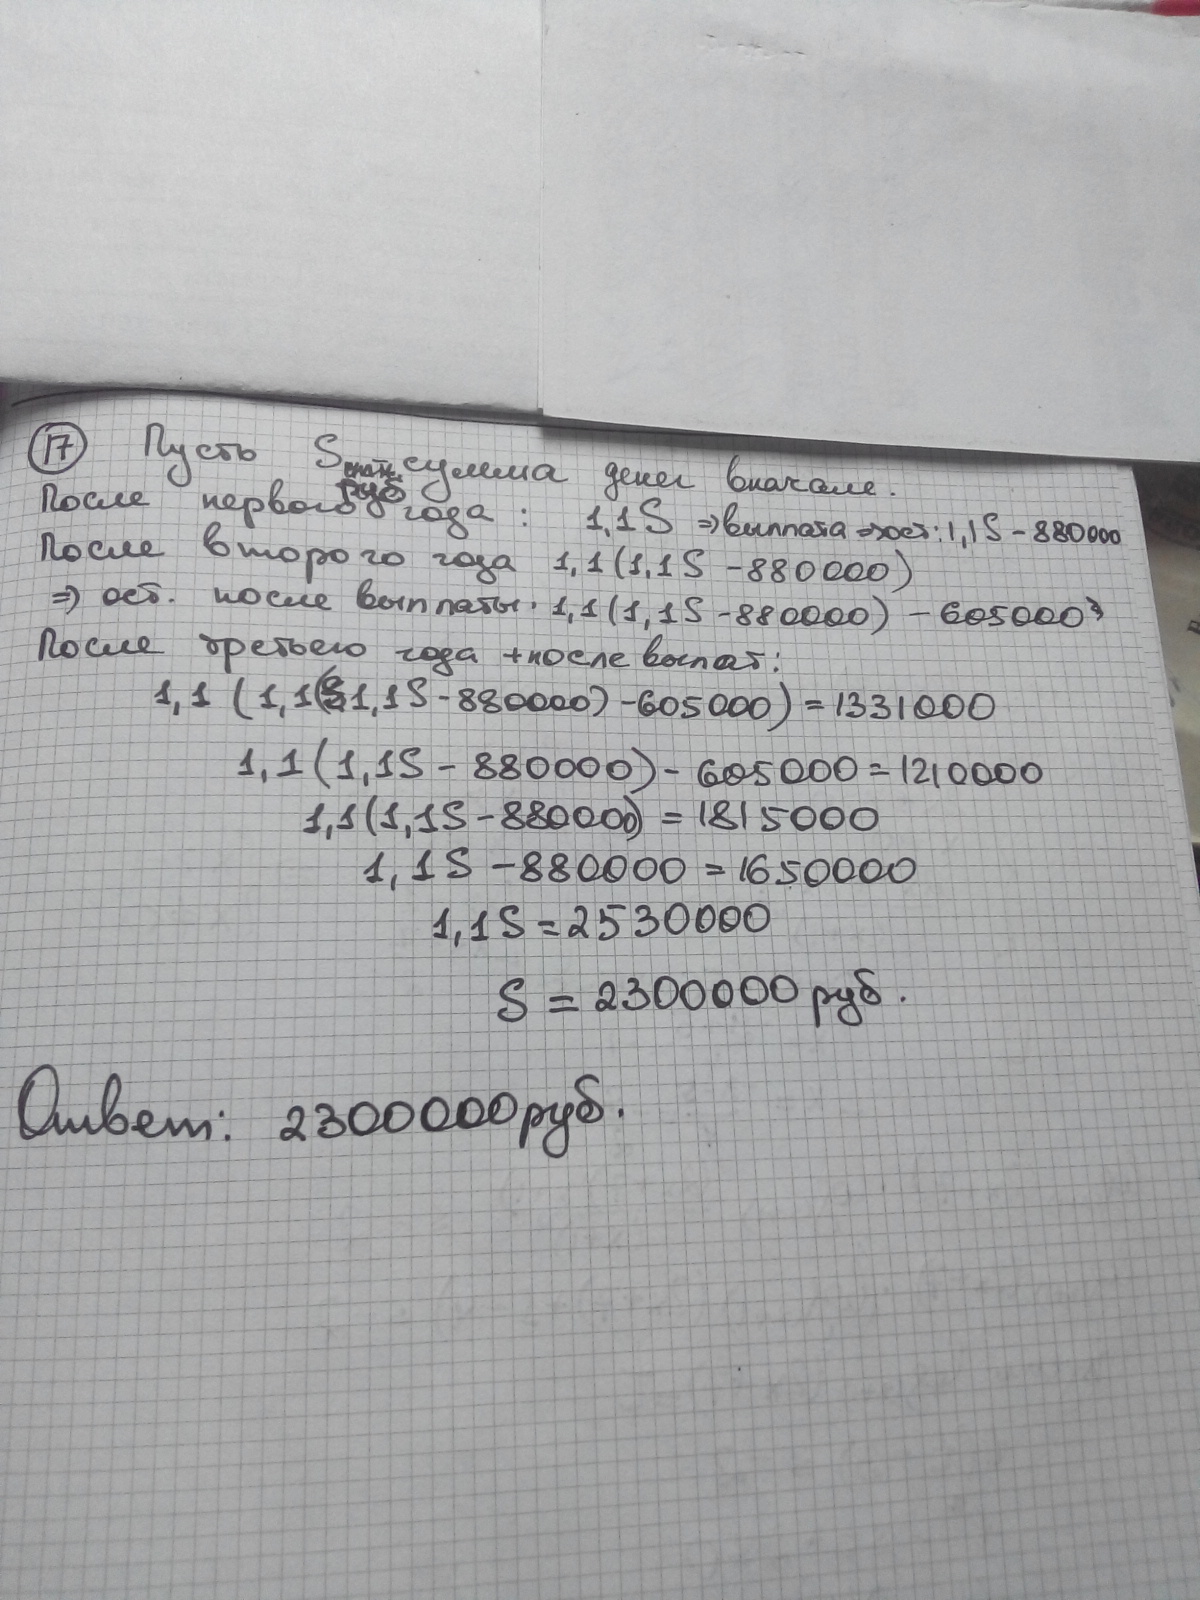 17 Пусть S руб сумма денег вначале.
После первого года: 1,1S ⇒ выплата ⇒ ост: 1,1S - 880000
После второго года 1,1(1,1S - 880000)
⇒ ост. после выплаты. 1,1(1,1S - 880000) - 605000
После третьего года + после выпат:
1,1(1,1(1,1S - 880000) - 605000) = 1331000
1,1(1,1S - 880000) - 605000 = 1210000
1,1(1,1S - 880000) = 1815000
1,1S - 880000 = 1650000
1,1S = 2530000
S = 2300000 руб.
Ответ: 2300000 руб.